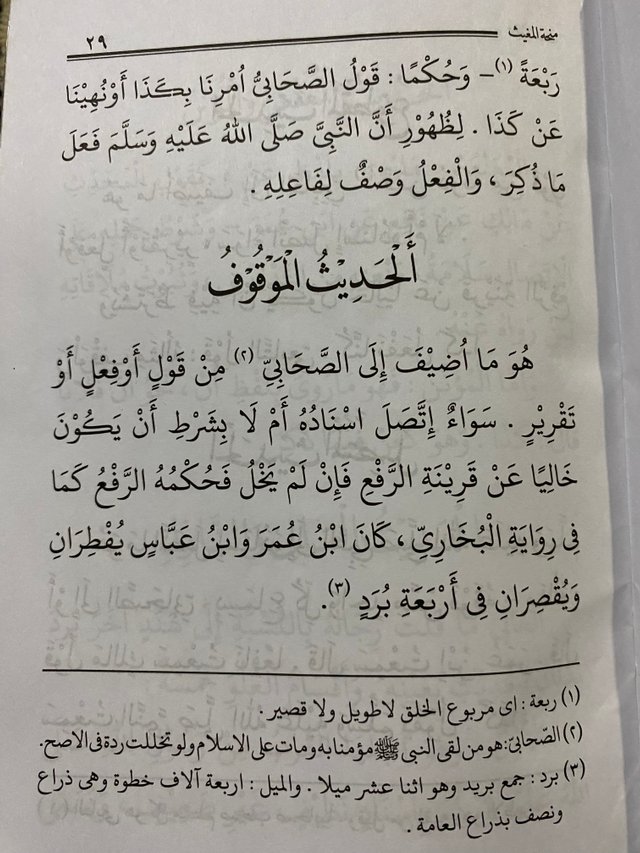 منحة المغيث ٢٩
رَبْعَةً (١) - وَحُكْمًا : قَوْلُ الصَّحَابِيُّ أُمْرِنَا بِكَذَا أَوْنُهِيْنَا
عَنْ كَذَا . لِظُهُوْرِ أَنَّ النَّبِيَّ صَلَّى اللهُ عَلَيْهِ وَسَلَّمَ فَعَلَ
مَا ذُكِرَ ، وَالْفِعْلُ وَصْفٌ لِفَاعِلِهِ .
أَلْحَدِيْثُ الْمَوْقُوْفُ
هُوَ مَا أُضِيْفَ إِلَى الصَّحَابِيِّ (٢) مِنْ قَوْلٍ أَوْفِعْلٍ أَوْ
تَقْرِيْرٍ . سَوَاءٌ إِتَّصَلَ اسْنَادُهُ أَمْ لَا بِشَرْطِ أَنْ يَكُوْنَ
خَالِيًا عَنْ قَرِيْنَةِ الرَّفْعِ فَإِنْ لَمْ يَخْلُ فَحُكْمُهُ الرَّفْعُ كَمَا
فِى رِوَايَةِ الْبُخَارِيِّ ، كَانَ ابْنُ عُمَرَ وَابْنُ عَبَّاسٍ يُفْطِرَانِ
وَيُقْصِرَانِ فِى أَرْبَعَةِ بُرَدٍ (٣).
(١) ربعة : اى مربوع الخلق لاطويل ولا قصير .
(٢) الصّحابيّ: هو من لقى النبى ﷺ مؤمنا به ومات على الاسلام ولو تخللت ردة فى الاصح.
(٣) برد : جمع بريد وهو اثنا عشر ميلا . والميل : اربعة آلاف خطوة وهى ذراع
ونصف بذراع العامة .